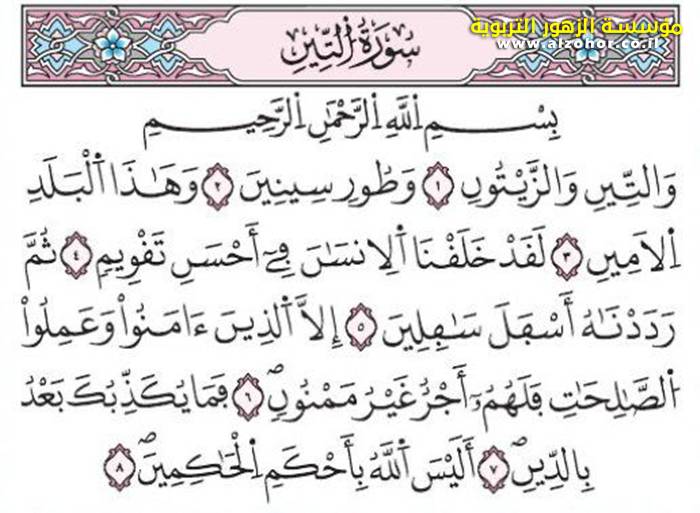 مؤسسة الزهور التربوية
www.alzohor.co.il
سُورَةُ التِّينِ
بِسْمِ اِللَّهِ اِلرَّحْمَٰنِ اِلرَّحِيمِ
وَالتِّينِ وَالزَّيْتُونِ ١ وَطُورِ سِينِينَ ٢ وَهَٰذَا اَلْبَلَدِ
اِلَامِينِ ٣ لَقَدْ خَلَقْنَا اَلِانسَٰنَ فِے أَحْسَنِ تَقْوِيمٍ ٤ ثُمَّ
رَدَدْنَٰهُ أَسْفَلَ سَٰفِلِينَ ٥ إِلَّا اَلذِينَ ءَامَنُواْ وَعَمِلُواْ
اُلصَّٰلِحَٰتِ فَلَهُمُۥٓ أَجْرٌ غَيْرُ مَمْنُونٖۖ ٦ فَمَا يُكَذِّبُكَ بَعْدُ
بِالدِّينِۖ ٧ أَلَيْسَ اَللَّهُ بِأَحْكَمِ اِلْحَٰكِمِينَۖ ٨